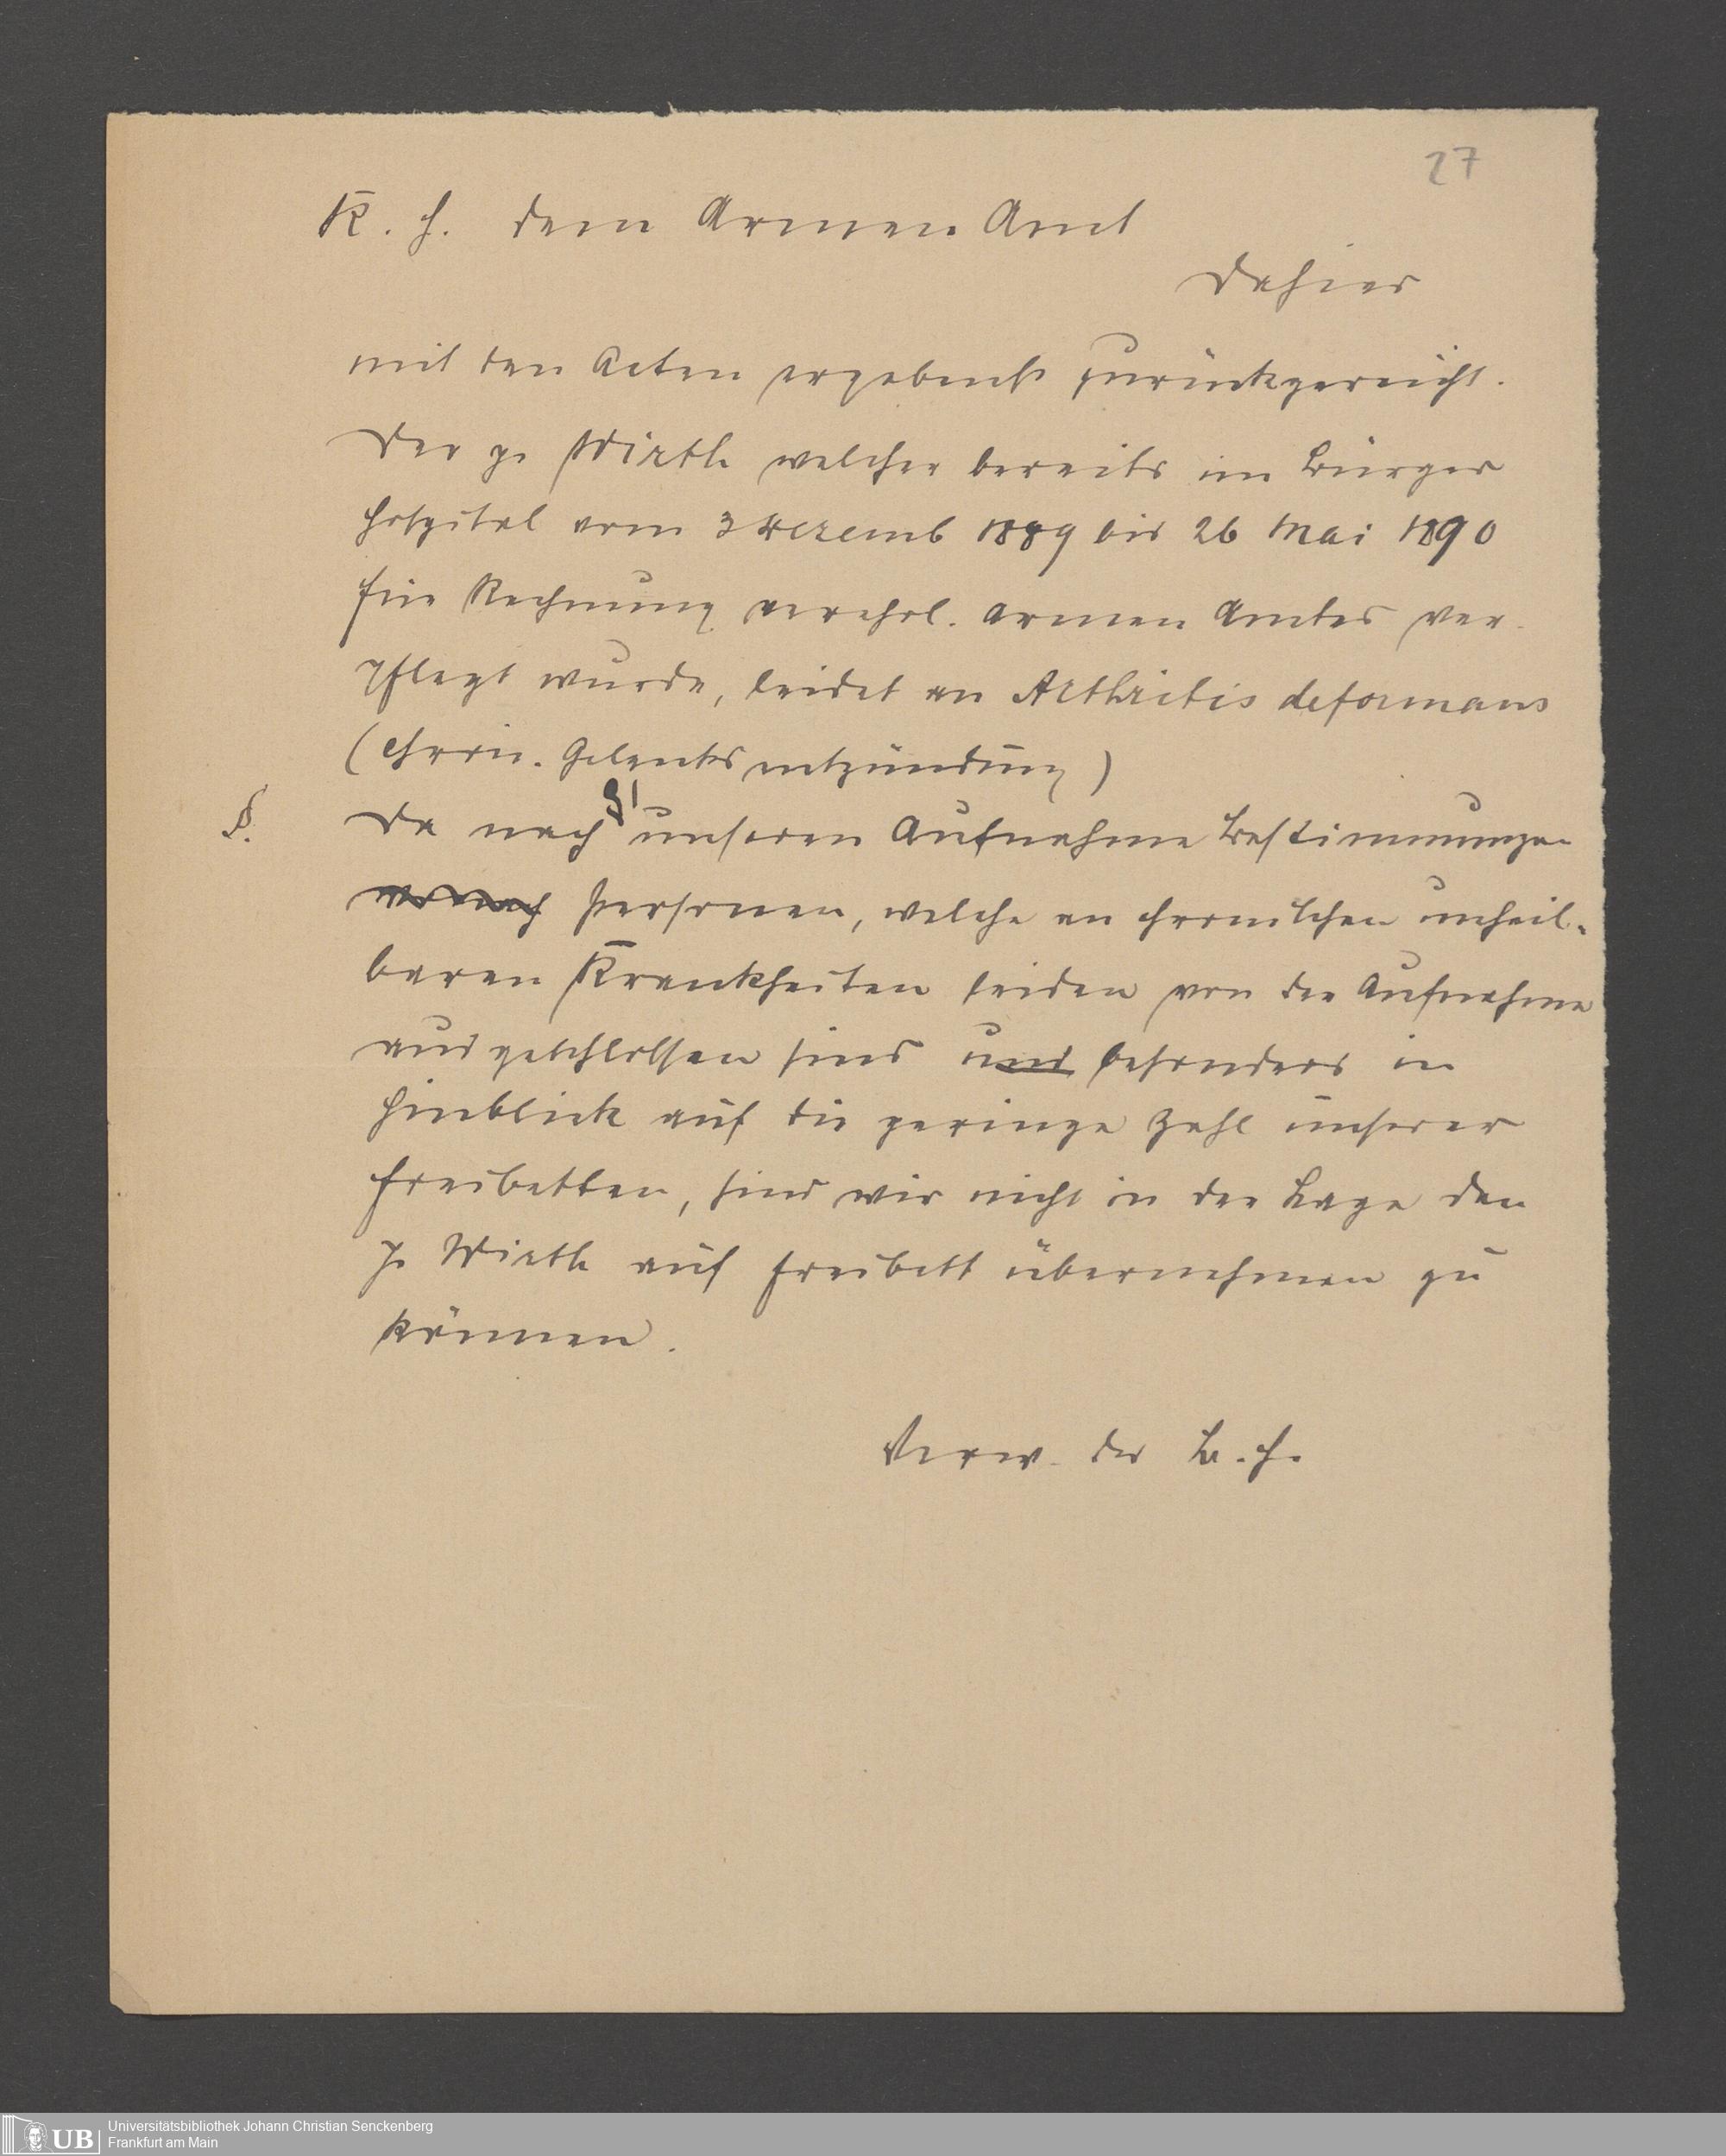 27
K. H. dem Armen Amt
Dahier
mit den Acten ergebenst zurückgereicht.
Der p. Wirth welcher bereits im Bürger
hospital vom 3 Dezemb 1889 bis 26 Mai 1890
für Rechnung verehrl. Armen Amtes ver-
pflegt wurde, leidet an Arthritis deformans
(chron. Gelenksentzündung)
§. Da nach § 1 unseren Aufnahme Bestimmungen
wonach Personen, welche an chronischen unheil-
baren Krankheiten leiden von der Aufnahme
ausgeschlossen sind und besonders in
Hinblick auf die geringe Zahl unserer
Freibetten, sind wir nicht in der Lage den
p. Wirth auf Freibett übernehmen zu
können.
Verw. des B. H.
UB Universitätsbibliothek Johann Christian Senckenberg
Frankfurt am Main